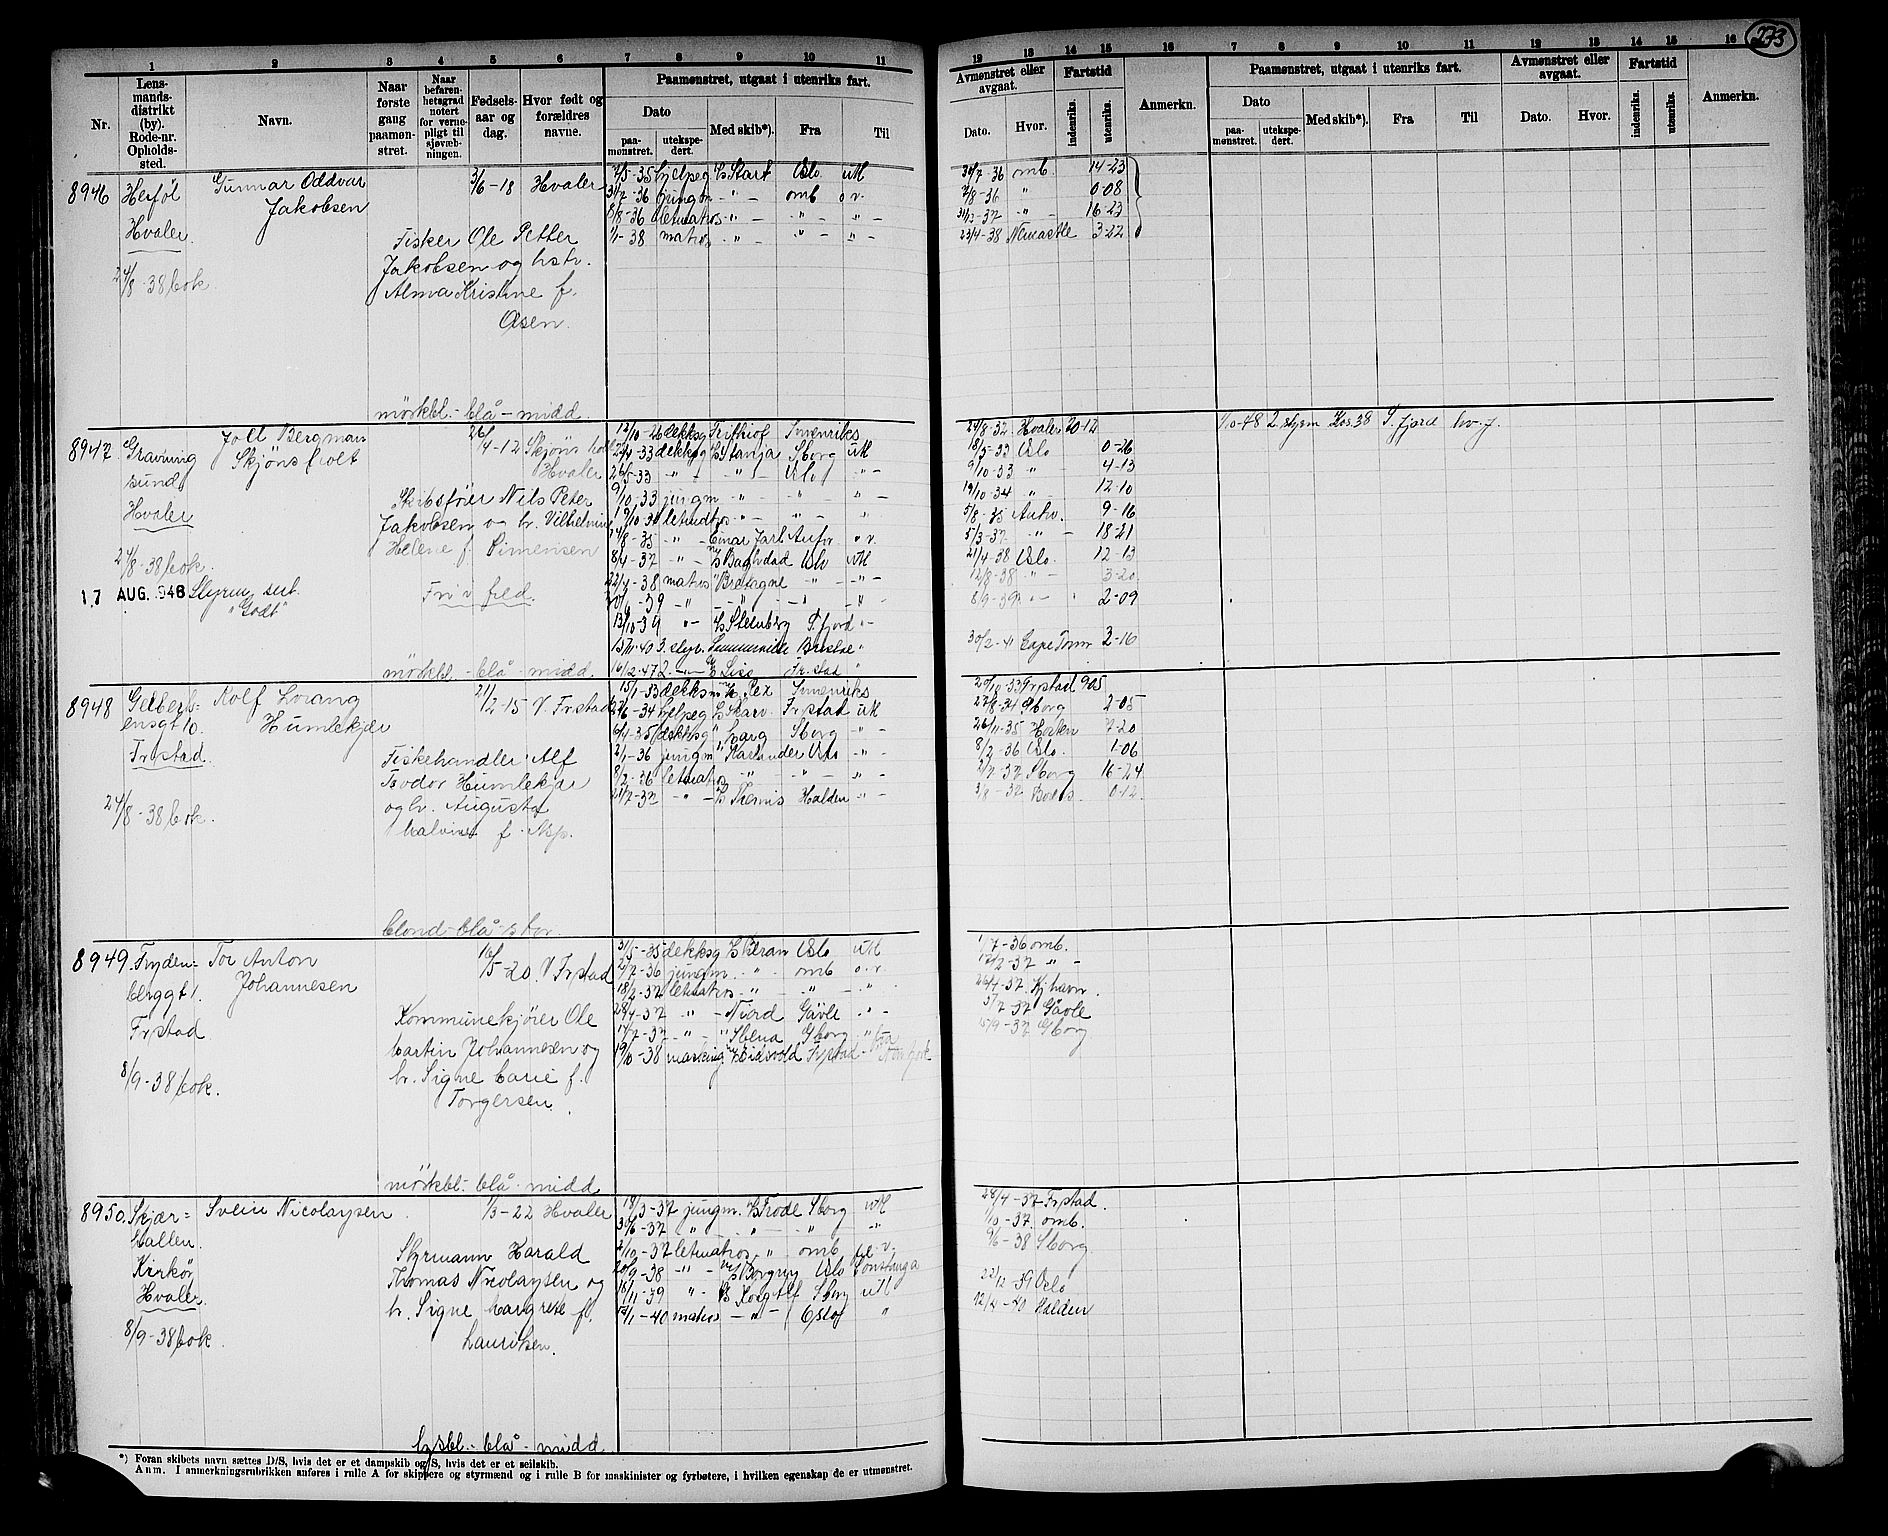 273
1 2 3 4 5 6 7 8 9 10 11
Nr.
Lens-
mands-
distrikt
(by).
Rode-nr.
Opholds-
sted.
Navn.
Naar
første
gang
paamøn-
stret.
Naar
befaren-
hetsgrad
notert
for verne-
pligt til
sjøvæb-
ningen.
Fødsels-
aar og
dag.
Hvor født og
forældres
navne.
Paamønstret, utgaat i utenriks fart.
Dato
paa-
mønstret.
utekspe-
dert.
Med skib*).
Fra
Til
12 13 14 15 16 7 8 9 10 11 12 13 14 15 16
Avmønstret eller
avgaat.
Dato.
Hvor.
Fartstid
indenriks.
utenriks.
Anmerkn.
Paamønstret, utgaat i utenriks fart.
Dato
paa-
mønstret.
utekspe-
dert.
Med skib*).
Fra
Til
Avmønstret eller
avgaat.
Dato.
Hvor.
Fartstid
indenriks.
utenriks.
Anmerkn.
8946 Herføl
Hvaler
24/8-38 bok
Gunnar Oddvar
Jakobsen
3/6-18 Hvaler
Fisker Ole Petter
Jakobsen og hstr.
Alma Kristine f.
Olsen.
mørkbl.- blå - midd.
2/5-35 hjelpeg Start Oslo utl
31/7-36 jungm " - omb o.v.
8/8-36 letmatros " - " - " -
1/1-38 matros " - " - " -
30/7-36 omb. 14-23
7/8-36 " 0-08
31/12-37 " - 16-23
23/4-38 Newcastle 3-22
8947 Gravning
sund
Hvaler
24/8-38 bok.
17 AUG. 1946 Styrm. sert.
"Godt"
Joll Bergman
Skjønsholt
26/4-12
Hvaler
Skibsfører Nils Peter
Jakobsen og h. Vilhelmine
Helene f. Simensen
Fri v fred.
mørkbl.- blå - midd.
12/10-26 dekksg Frithiof Innenriks
27/4-33 dekksg Stanja Sborg utl
26/5-33 " - " - Oslo " -
9/10-33 jungm " - " - " -
19/10-34 letmatros " - " - "
14/8-35 " - Einar Jarl Antv. o.v.
8/4-37 " - Baghdad Oslo utl
22/4-38 matros Bretagne " - " -
" - " - " "
13/10-39 " - Steinberg S.fjord " -
15/11-40 3. styr. Sommerville "
16/2-47 2. " - Lise Fr.stad "
24/8-32 Hvaler 20-12
18/5-33 Oslo 0-26
9/10-33 " 4-13
19/10-34 " - 12-10
5/8-35 Antw. 9-16
5/3-37 " - 18-21
21/4-38 Oslo. 12-13
12/8-38 " - 3-20
8/9-39 " - 2-09
30/2-41 Cape Town 2-16
1/10-48 2. styrm 38 S.fjord
8948 Gelbert-
ensgt 10.
Fr.stad
24/8-38 bok.
Rolf Lorang
Humlekjær
21/2-15 V Fr.stad
Fiskehandler Alf
Teodor Humlekjær
og h. Augusta
Malvine f. Asp.
blond - blå - stor.
15/1-33 dekksm Rex Innenriks
27/6-34 hjelpeg Skarv. Fr.stad utl
6/4-35 dekksg Varg Sborg " -
2/1-36 jungm Karlander Oslo " -
8/2-36 letmatros " " - " -
21/7-37 " - Themis Halden " -
20/10-33 Fr.stad 905
27/8-34 Sborg 2-05
26/11-35 Horten 7-20
8/2-36 Oslo. 1-06
2/7-37 Sborg 16-24
3/8-37 0-12
8949. Fryden-
berggt 1.
Fr.stad
8/9-38 bok.
Tor Anton
Johannesen
16/5-20. V Fr.stad
Kommunekjører Ole
Martin Johannesen og
h. Signe Marie f.
Torgersen
mørkbl. - blå - midd.
31/5-35 dekksg Oslo utl
2/7-36 jungm. " - omb o.v.
18/2-37 letmatros " - " - " -
28/4-37 " - Njord Gävle " -
14/7-37 " - Stena Gborg "
19/10-38 Eidsvold Fr.stad
1/7-36 omb.
17/2-37 " -
26/4-37 Kj.havn.
5/7-37 Gävle
15/9-37 Gborg
8950. Skjær-
hallen
Kirkøy
Hvaler.
8/9-38 bok.
Svein Nicolaysen
1/3-22 Hvaler
Styrmann Harald
Thomas Nicolaysen og
h. Signe Margrete f.
Lauritzen.
lysbl.- blå - midd.
18/3-37 jungm. Frode Sborg utl
30/6-37 " " - " "
2/10-37 letmatros " - omb o.v.
20/9-38 " - Borgny Oslo
18/11-39 " - Kong Alf Sborg utl
12/1-40 matros - " - Oslo "
28/4-37 Fr.stad.
1/10-37. omb.
9/6-38 Sborg
22/12-39 Oslo
12/4-40 Halden
*) Foran skibets navn sættes D/S, hvis det er et dampskib og S, hvis det er et seilskib.
Anm. I anmerkningsrubrikken anføres i rulle A for skippere og styrmænd og i rulle B for maskinister og fyrbøtere, i hvilken egenskap de er utmønstret.